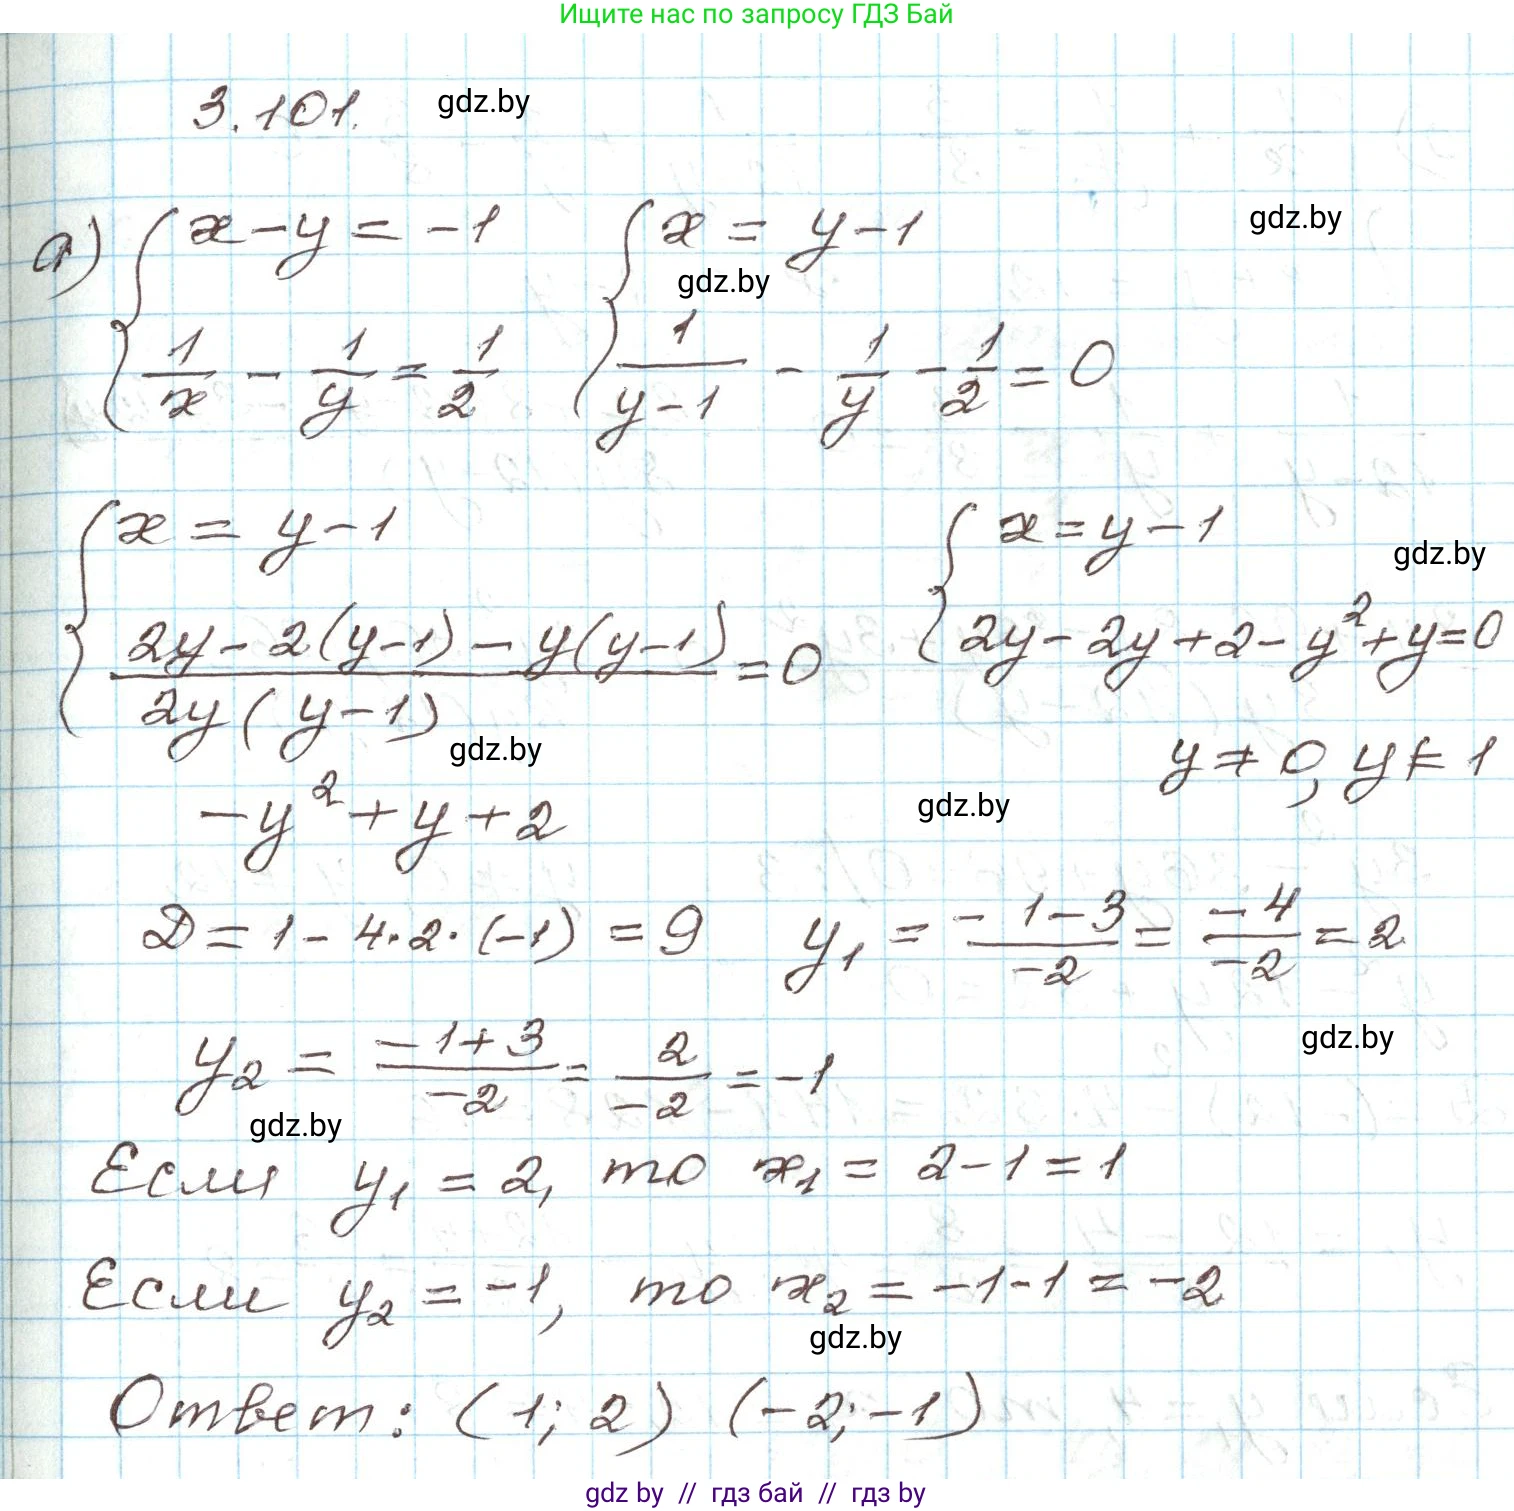 Ищите нас по запросу ГДЗ Бай
3.101. gdz.by
а) { x - y = -1 { x = y - 1 gdz.by
gdz.by
1/x - 1/y = 1/2 1/(y-1) - 1/y - 1/2 = 0
{ x = y - 1 { x = y - 1
gdz.by
(2y - 2(y-1) - y(y-1))/(2y(y-1)) = 0 2y - 2y + 2 - y² + y = 0
gdz.by
y ≠ 0, y ≠ 1
-y² + y + 2 gdz.by
D = 1 - 4·2·(-1) = 9 y₁ = (-1-3)/(-2) = (-4)/(-2) = 2
y₂ = (-1+3)/(-2) = 2/(-2) = -1 gdz.by
gdz.by
Если y₁ = 2, то x₁ = 2 - 1 = 1
Если y₂ = -1, то x₂ = -1 - 1 = -2
gdz.by
Ответ: (1; 2) (-2; -1)
gdz by // гдз бай // гдз by